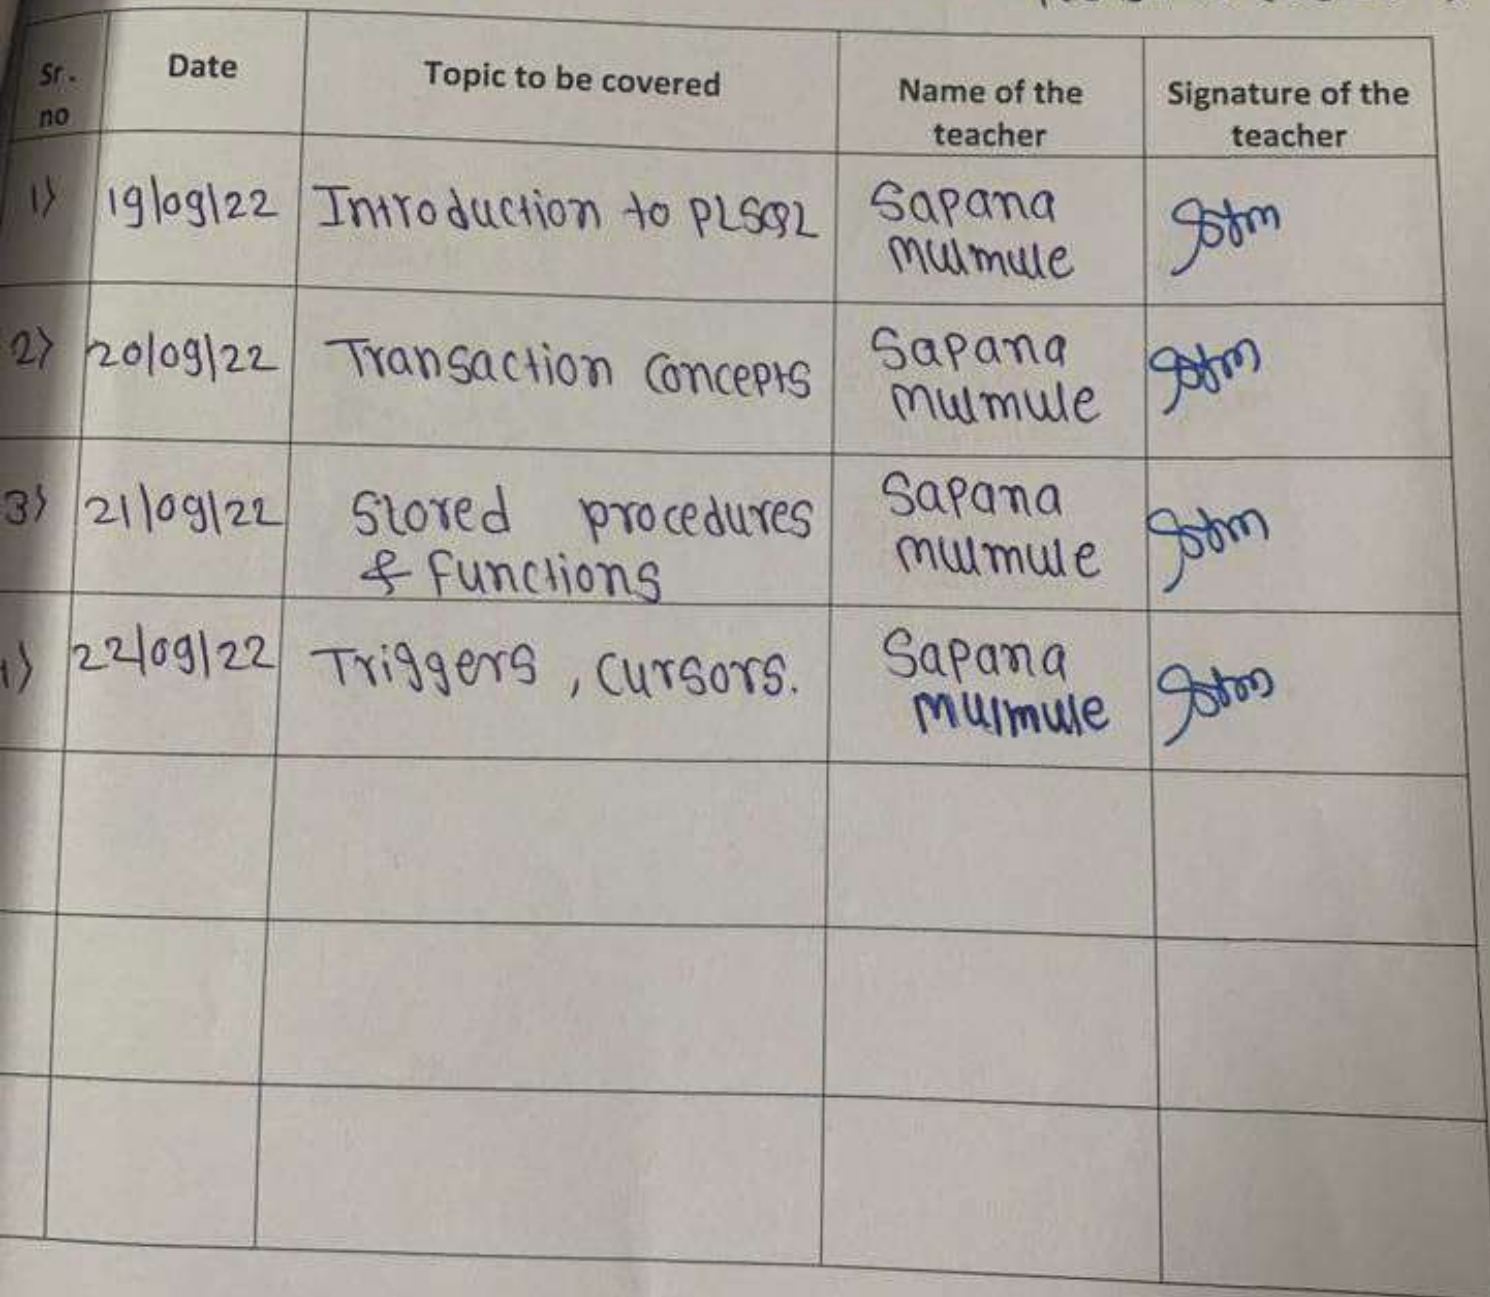 Sr. no Date Topic to be covered Name of the teacher Signature of the teacher
1) 19/09/22 Introduction to PLSQL Sapana mulmule
2) 20/09/22 Transaction concepts Sapana mulmule
3) 21/09/22 Stored procedures & functions Sapana mulmule
22/09/22 Triggers, cursors. Sapana mulmule